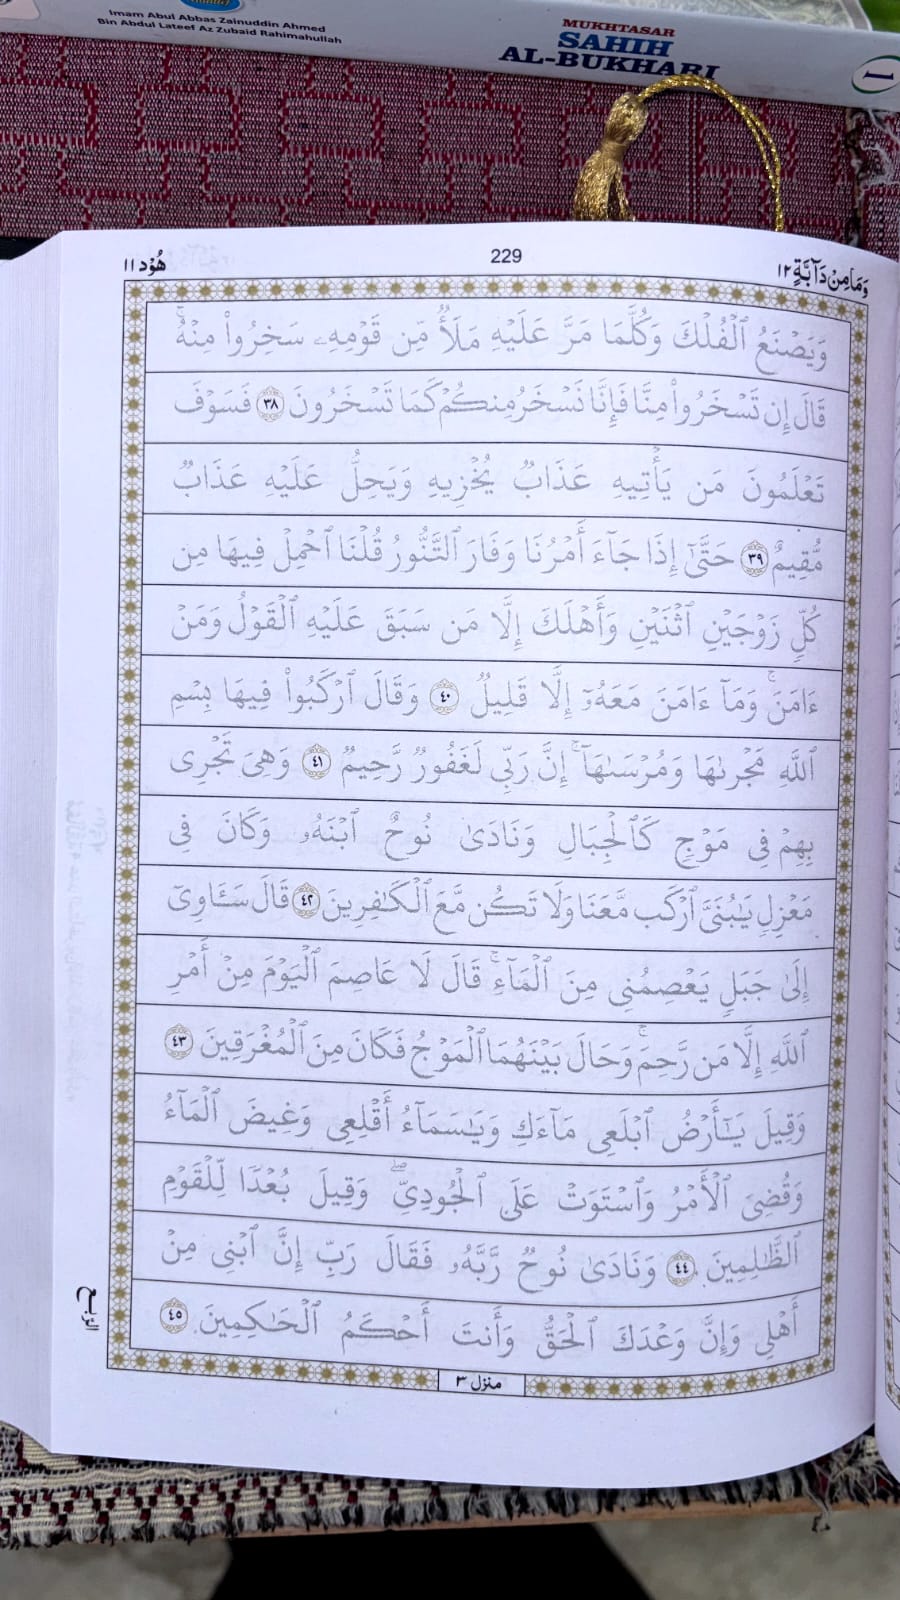 Imam Abul Abbas Zainuddin Ahmed
Bin Abdul Lateef Az Zubaid Rahimahullah
MUKHTASAR
SAHIH
AL-BUKHARI
١
وَمَا مِنْ دَآبَّةٍ ١٢
229
هُوْد ١١
وَيَصْنَعُ ٱلْفُلْكَ وَكُلَّمَا مَرَّ عَلَيْهِ مَلَأٌ مِّن قَوْمِهِۦ سَخِرُوا۟ مِنْهُ ۚ
قَالَ إِن تَسْخَرُوا۟ مِنَّا فَإِنَّا نَسْخَرُ مِنكُمْ كَمَا تَسْخَرُونَ ٣٨ فَسَوْفَ
تَعْلَمُونَ مَن يَأْتِيهِ عَذَابٌ يُخْزِيهِ وَيَحِلُّ عَلَيْهِ عَذَابٌ
مُّقِيمٌ ٣٩ حَتَّىٰٓ إِذَا جَآءَ أَمْرُنَا وَفَارَ ٱلتَّنُّورُ قُلْنَا ٱحْمِلْ فِيهَا مِن
كُلٍّ زَوْجَيْنِ ٱثْنَيْنِ وَأَهْلَكَ إِلَّا مَن سَبَقَ عَلَيْهِ ٱلْقَوْلُ وَمَنْ
ءَامَنَ ۚ وَمَآ ءَامَنَ مَعَهُۥٓ إِلَّا قَلِيلٌ ٤٠ وَقَالَ ٱرْكَبُوا۟ فِيهَا بِسْمِ
ٱللَّهِ مَجْر۪ىٰهَا وَمُرْسَىٰهَآ ۚ إِنَّ رَبِّى لَغَفُورٌ رَّحِيمٌ ٤١ وَهِىَ تَجْرِى
بِهِمْ فِى مَوْجٍ كَٱلْجِبَالِ وَنَادَىٰ نُوحٌ ٱبْنَهُۥ وَكَانَ فِى
مَعْزِلٍ يَـٰبُنَىَّ ٱرْكَب مَّعَنَا وَلَا تَكُن مَّعَ ٱلْكَـٰفِرِينَ ٤٢ قَالَ سَـَٔاوِىٓ
إِلَىٰ جَبَلٍ يَعْصِمُنِى مِنَ ٱلْمَآءِ ۚ قَالَ لَا عَاصِمَ ٱلْيَوْمَ مِنْ أَمْرِ
ٱللَّهِ إِلَّا مَن رَّحِمَ ۚ وَحَالَ بَيْنَهُمَا ٱلْمَوْجُ فَكَانَ مِنَ ٱلْمُغْرَقِينَ ٤٣
وَقِيلَ يَـٰٓأَرْضُ ٱبْلَعِى مَآءَكِ وَيَـٰسَمَآءُ أَقْلِعِى وَغِيضَ ٱلْمَآءُ
وَقُضِىَ ٱلْأَمْرُ وَٱسْتَوَتْ عَلَى ٱلْجُودِىِّ ۖ وَقِيلَ بُعْدًا لِّلْقَوْمِ
ٱلظَّـٰلِمِينَ ٤٤ وَنَادَىٰ نُوحٌ رَّبَّهُۥ فَقَالَ رَبِّ إِنَّ ٱبْنِى مِنْ
أَهْلِى وَإِنَّ وَعْدَكَ ٱلْحَقُّ وَأَنتَ أَحْكَمُ ٱلْحَـٰكِمِينَ ٤٥
الربع
منزل ٣